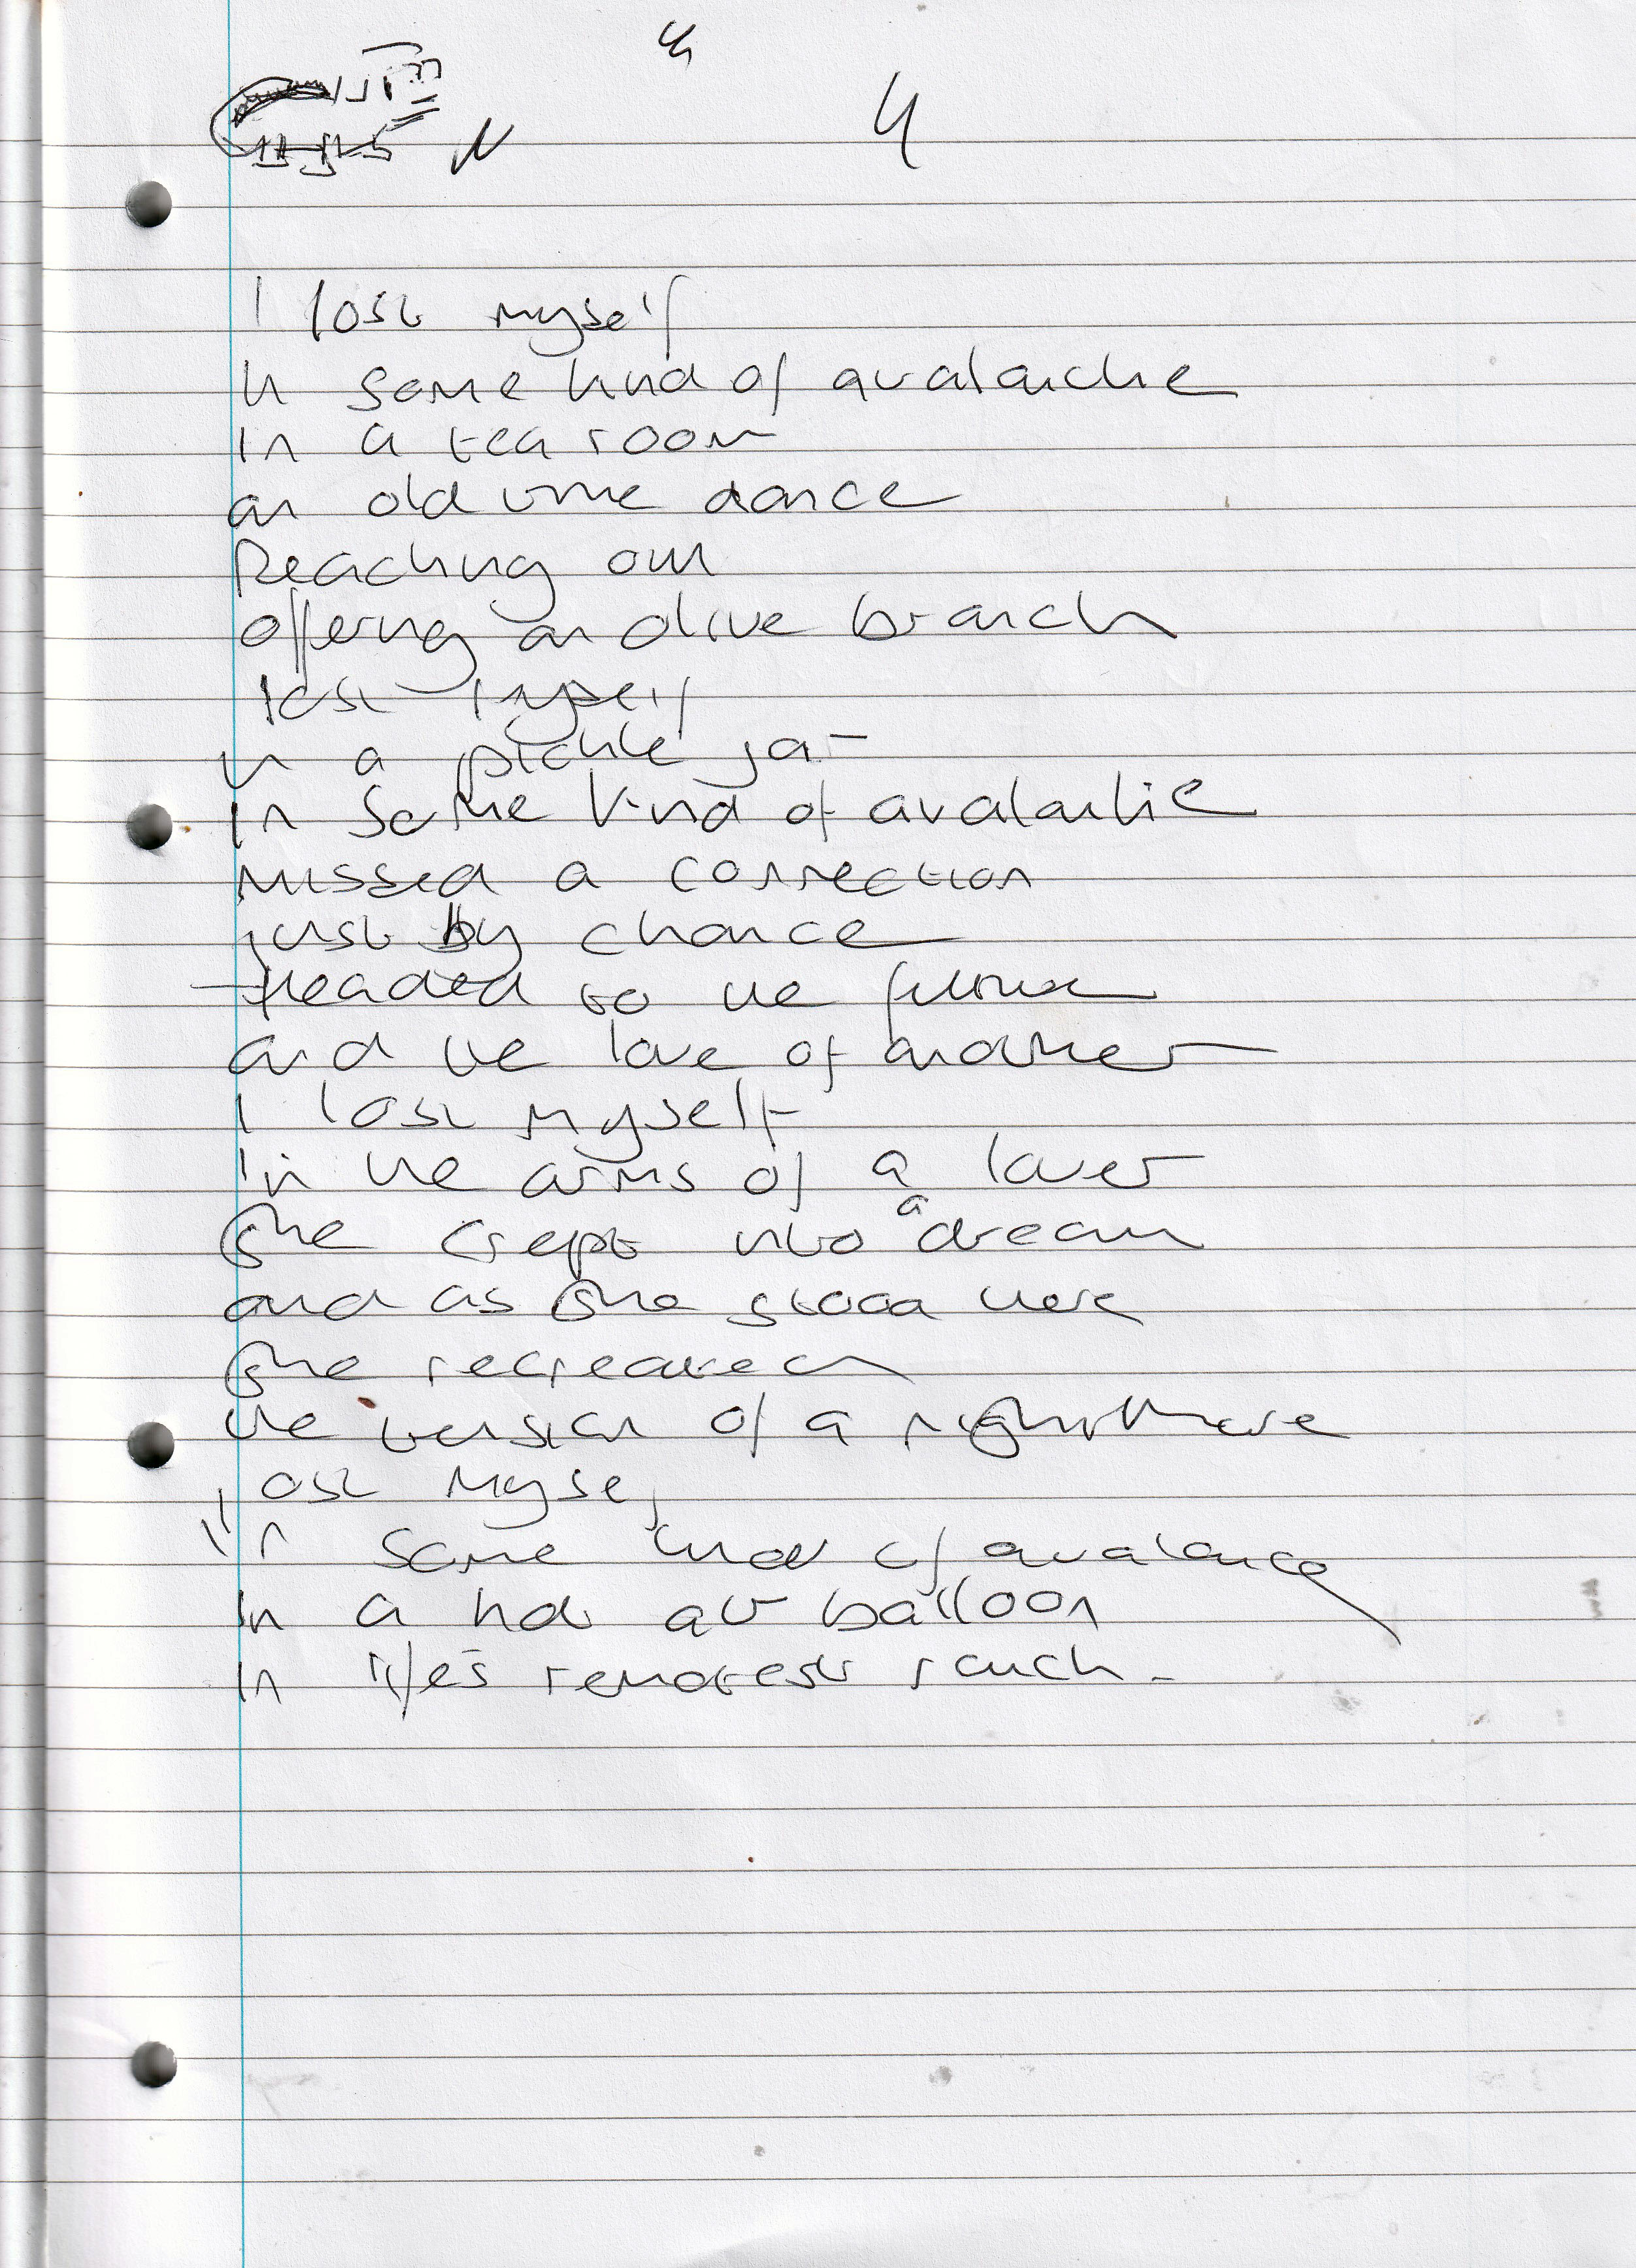 4
4
I lost myself
In some kind of avalanche
In a tea room
an old time dance
Reaching out
offering an olive branch
lost myself
In a pickle jar
In some kind of avalanche
missed a connection
just by chance
Headed to the future
and the love of another
I lost myself
In the arms of a lover
She crept into a dream
and as she stood there
she recreated
the version of a nightmare
lost myself
In some kind of avalanche
In a hot air balloon
In life's remotest ranch